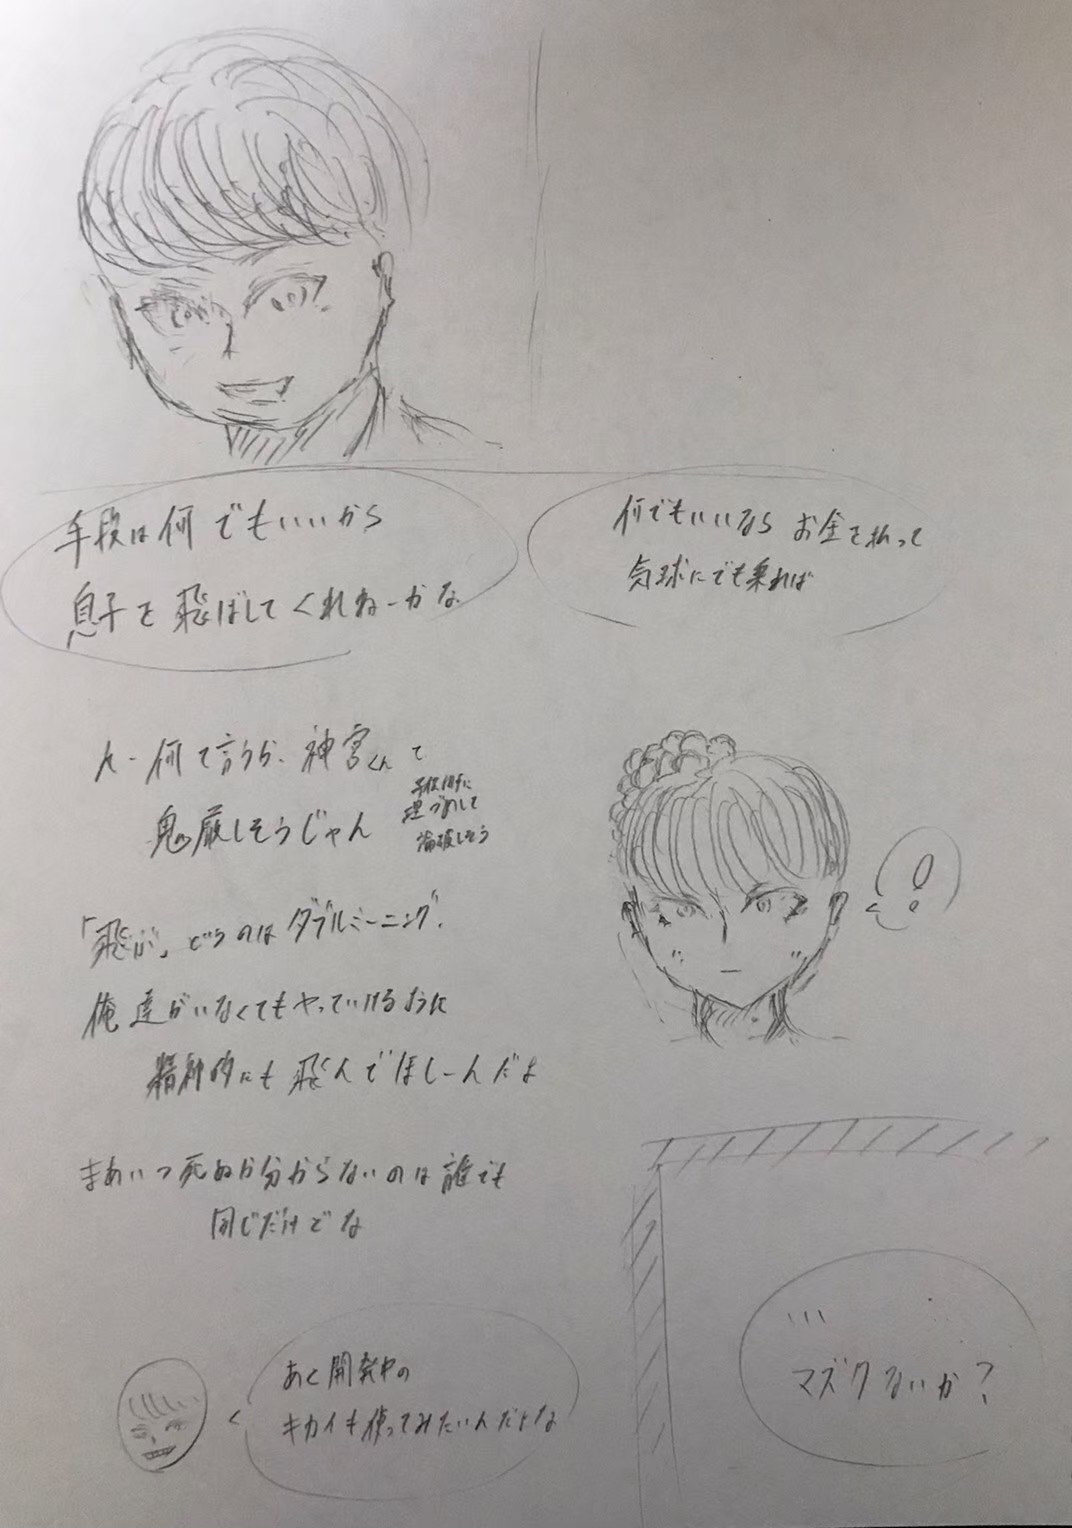 手段は何でもいいから
息子を飛ばしてくれねーかな
何でもいいなら お金を払って
気球にでも乗れば
んー何て言うか、神宮くんて
鬼厳しそうじゃん
理づめして
論破しそう
「飛ぶ」というのはダブルミーニング。
俺達がいなくてもやっていけるように
精神的にも飛んでほしーんだよ
まあいつ死ぬか分からないのは誰でも
同じだけどな
あと開発中の
キカイも使ってみたいんだよな
…
マズくないか?